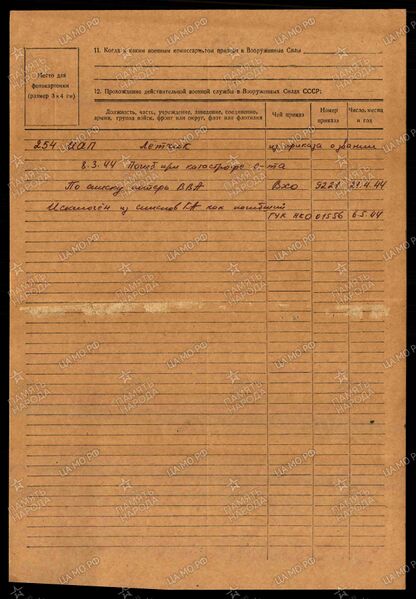 11. Когда и каким военным комиссариатом призван в Вооруженные Силы
Место для
фотокарточки
(размер 3×4 см)
12. Прохождение действительной военной службы в Вооруженных Силах СССР:
Должность, часть, учреждение, заведение, соединение,
армия, группа войск, фронт или округ, флот или флотилия
Чей приказ
Номер
приказа
Число, месяц
и год
254 ИАП летчик из приказа о звании
8.3.44 Погиб при катастрофе с-та
По списку потерь ВВА Вхо 9221 21.4.44
Исключён из списков КА как погибший
ГУК НКО 01556 6.5.44
ПАМЯТЬ
НАРОДА
ЦАМО.РФ